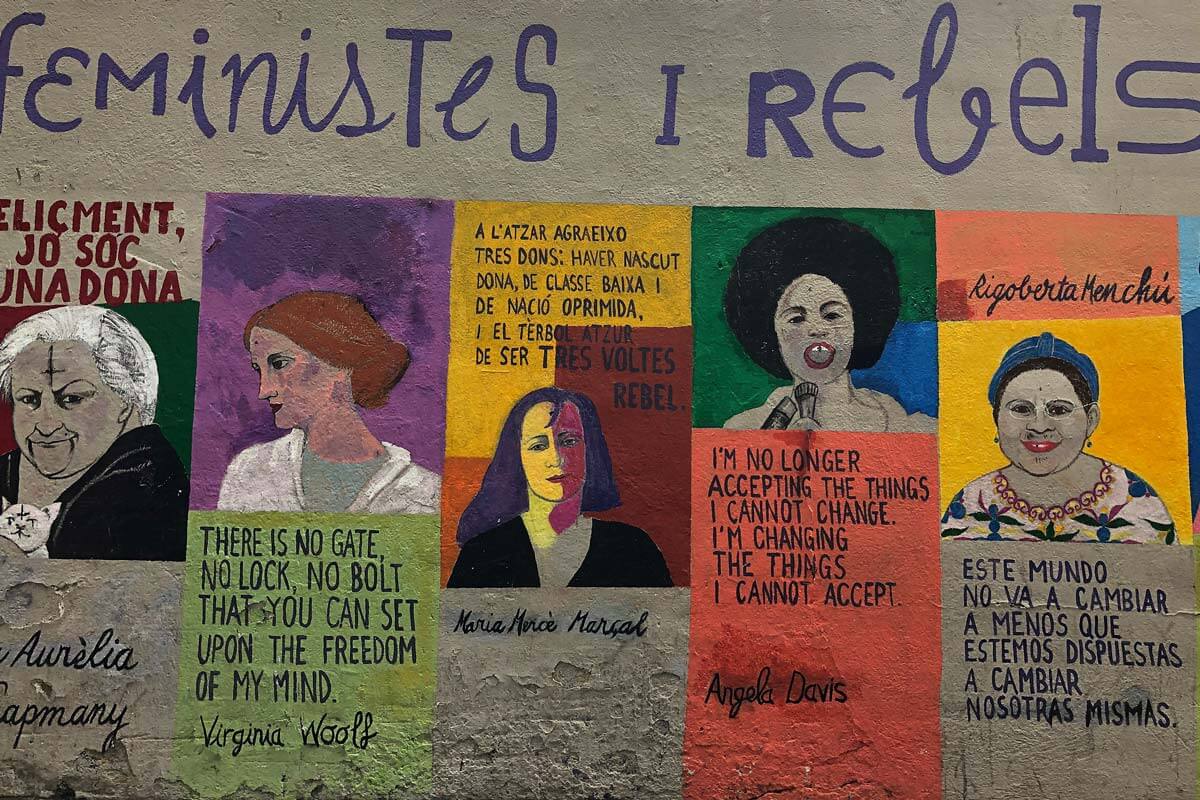 feministes i rebels
ELIÇMENT,
JO SÓC
UNA DONA
Aurèlia
apmany
THERE IS NO GATE,
NO LOCK, NO BOLT
THAT YOU CAN SET
UPON THE FREEDOM
OF MY MIND.
Virginia Woolf
A L'ATZAR AGRAEIXO
TRES DONS: HAVER NASCUT
DONA, DE CLASSE BAIXA I
DE NACIÓ OPRIMIDA,
I EL TÈRBOL ATZUR
DE SER TRES VOLTES
REBEL.
Maria Mercè Marçal
I'M NO LONGER
ACCEPTING THE THINGS
I CANNOT CHANGE.
I'M CHANGING
THE THINGS
I CANNOT ACCEPT.
Angela Davis
Rigoberta Menchú
ESTE MUNDO
NO VA A CAMBIAR
A MENOS QUE
ESTEMOS DISPUESTAS
A CAMBIAR
NOSOTRAS MISMAS.